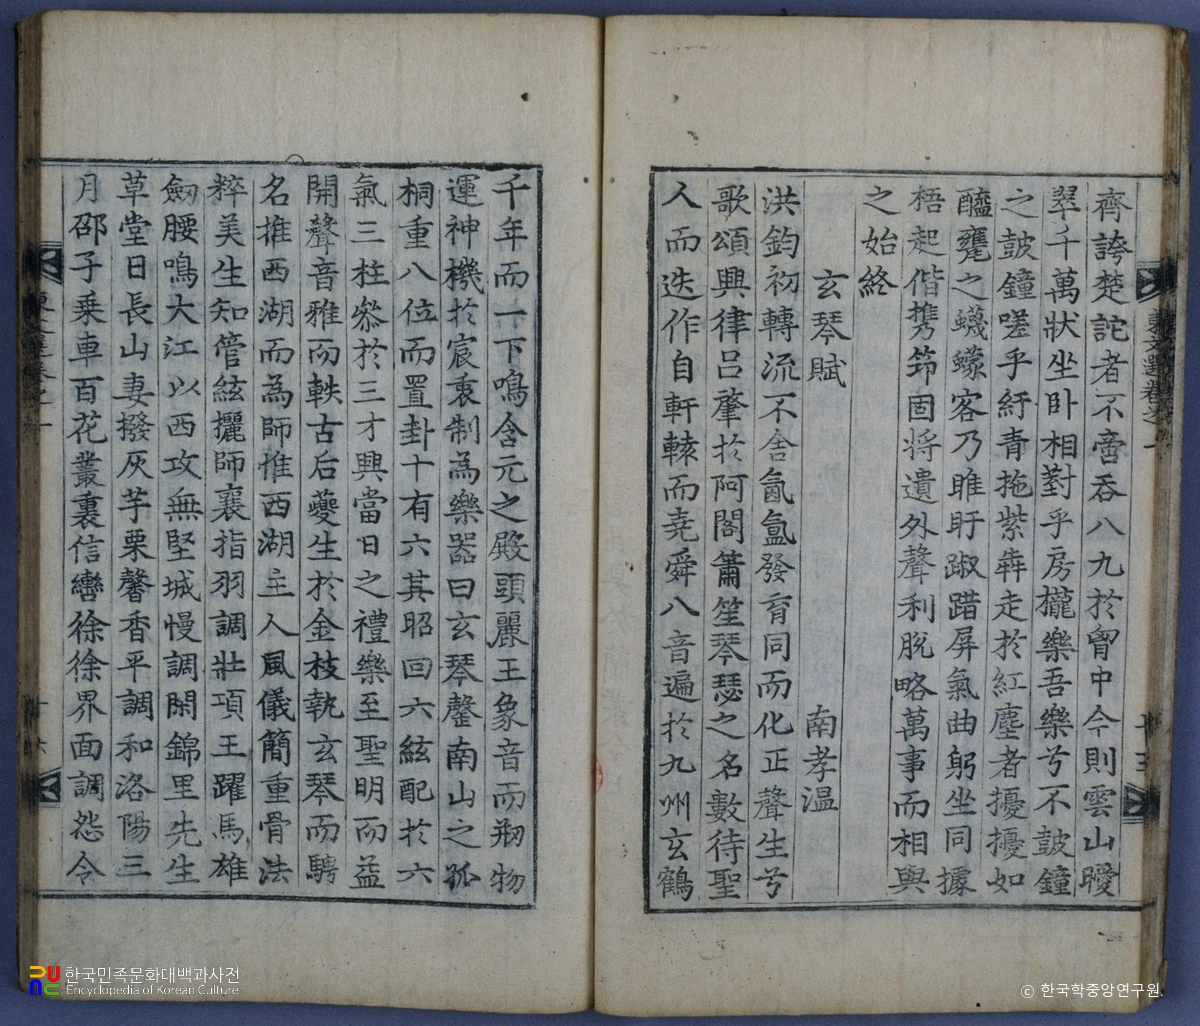 齊誇楚詫者不啻呑八九於胷中今則雲山曖
翠千萬狀坐卧相對乎房櫳樂吾樂兮不皷鐘
之皷鐘嗟乎紆靑拖紫犇走於紅塵者擾擾如
醯甕之蠛蠓客乃睢盱踧踖屏氣曲躬坐同據
梧起偕携筇固將遺外聲利脫略萬事而相與
之始終
玄琴賦 南孝溫
洪鈞初轉流不舍氤氳發育同而化正聲生兮
歌頌興律呂肇於阿閣簫笙琴瑟之名數待聖
人而迭作自軒轅而堯舜八音遍於九州玄鶴
千年而一下鳴含元之殿頭麗王象音而刱物
運神機於宸衷制爲樂器曰玄琴罄南山之孤
桐重八位而置卦十有六其昭回六絃配於六
氣三柱叅於三才興當日之禮樂至聖明而益
開聲音雅而軼古后夔生於金枝執玄琴而騁
名推西湖而爲師惟西湖主人風儀簡重骨法
粹美生知管絃攦師襄指羽調壯項王躍馬雄
劒腰鳴大江以西攻無堅城慢調閑錦里先生
草堂日長山妻撥灰芋栗馨香平調和洛陽三
月邵子乘車百花叢裏信轡徐徐界面調怨令
東文選卷之一
十五
十六
한국민족문화대백과사전
Encyclopedia of Korean Culture
ⓒ 한국학중앙연구원.